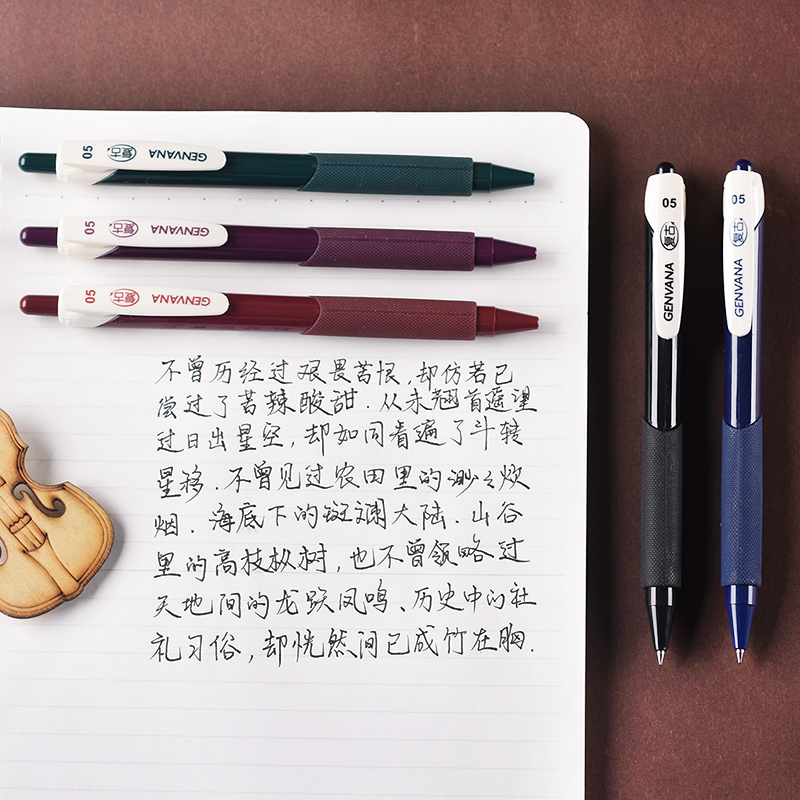 05 复古 GENVANA
05 复古 GENVANA
05 复古 GENVANA
05 复古 GENVANA
05 复古 GENVANA
不曾历经过艰畏苦恨,却仿若已
尝过了苦辣酸甜.从未翘首遥望
过日出星空,却如同看遍了斗转
星移.不曾见过农田里的渺之炊
烟.海底下的斑斓大陆.山谷
里的高枝枞树,也不曾领略过
天地间的龙跃凤鸣、历史中的社
礼习俗,却恍然间已成竹在胸.